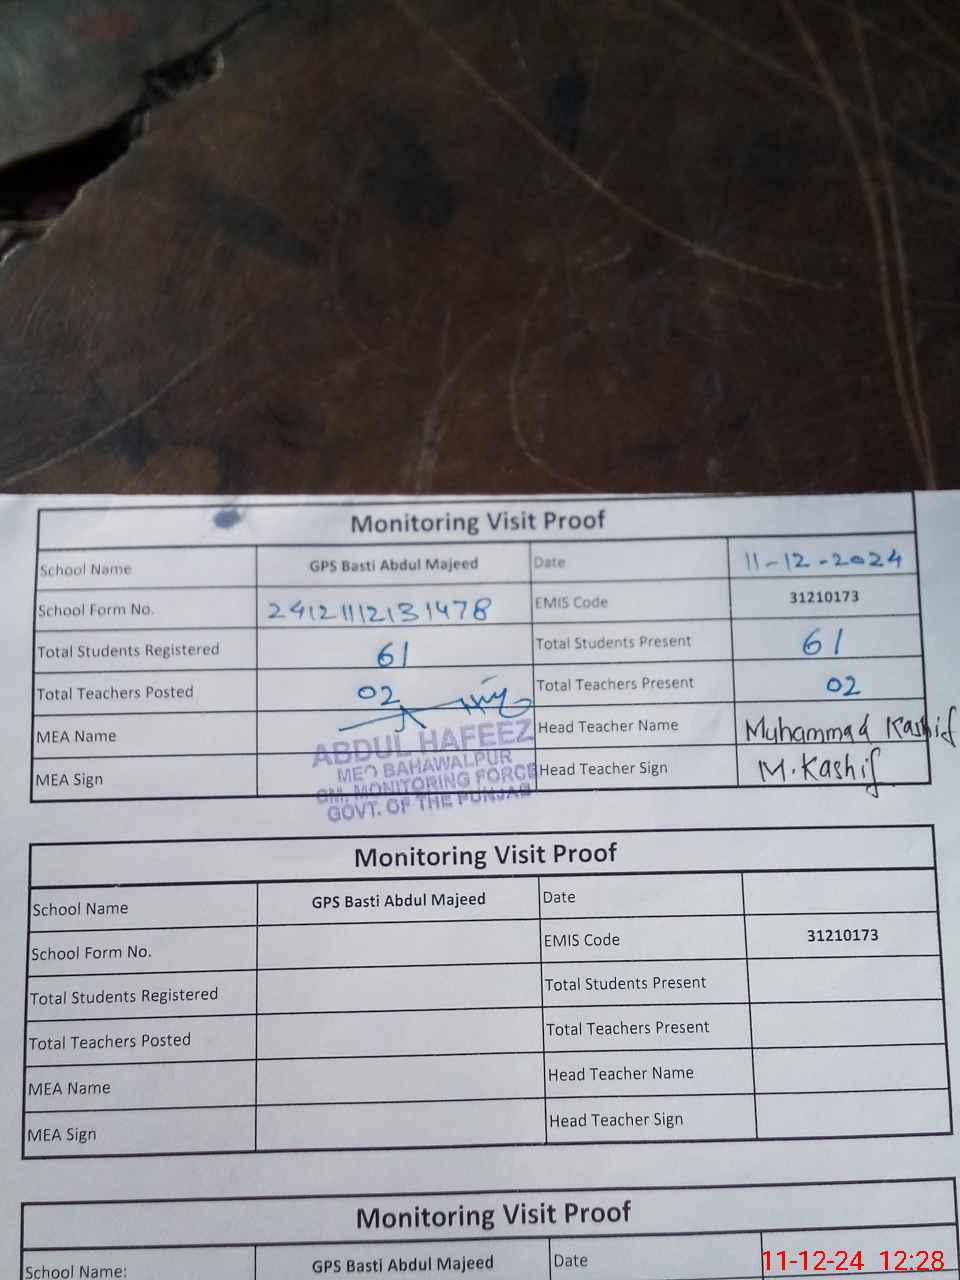 Monitoring Visit Proof
School Name GPS Basti Abdul Majeed Date 11-12-2024
School Form No. 2412112131478 EMIS Code 31210173
Total Students Registered 61 Total Students Present 61
Total Teachers Posted 02 Total Teachers Present 02
MEA Name Head Teacher Name Muhammad Kashif
MEA Sign Head Teacher Sign M.Kashif
ABDUL HAFEEZ
MEO BAHAWALPUR
CM, MONITORING FORCE
GOVT. OF THE PUNJAB
Monitoring Visit Proof
School Name GPS Basti Abdul Majeed Date
School Form No. EMIS Code 31210173
Total Students Registered Total Students Present
Total Teachers Posted Total Teachers Present
MEA Name Head Teacher Name
MEA Sign Head Teacher Sign
Monitoring Visit Proof
School Name: GPS Basti Abdul Majeed Date
11-12-24 12:28